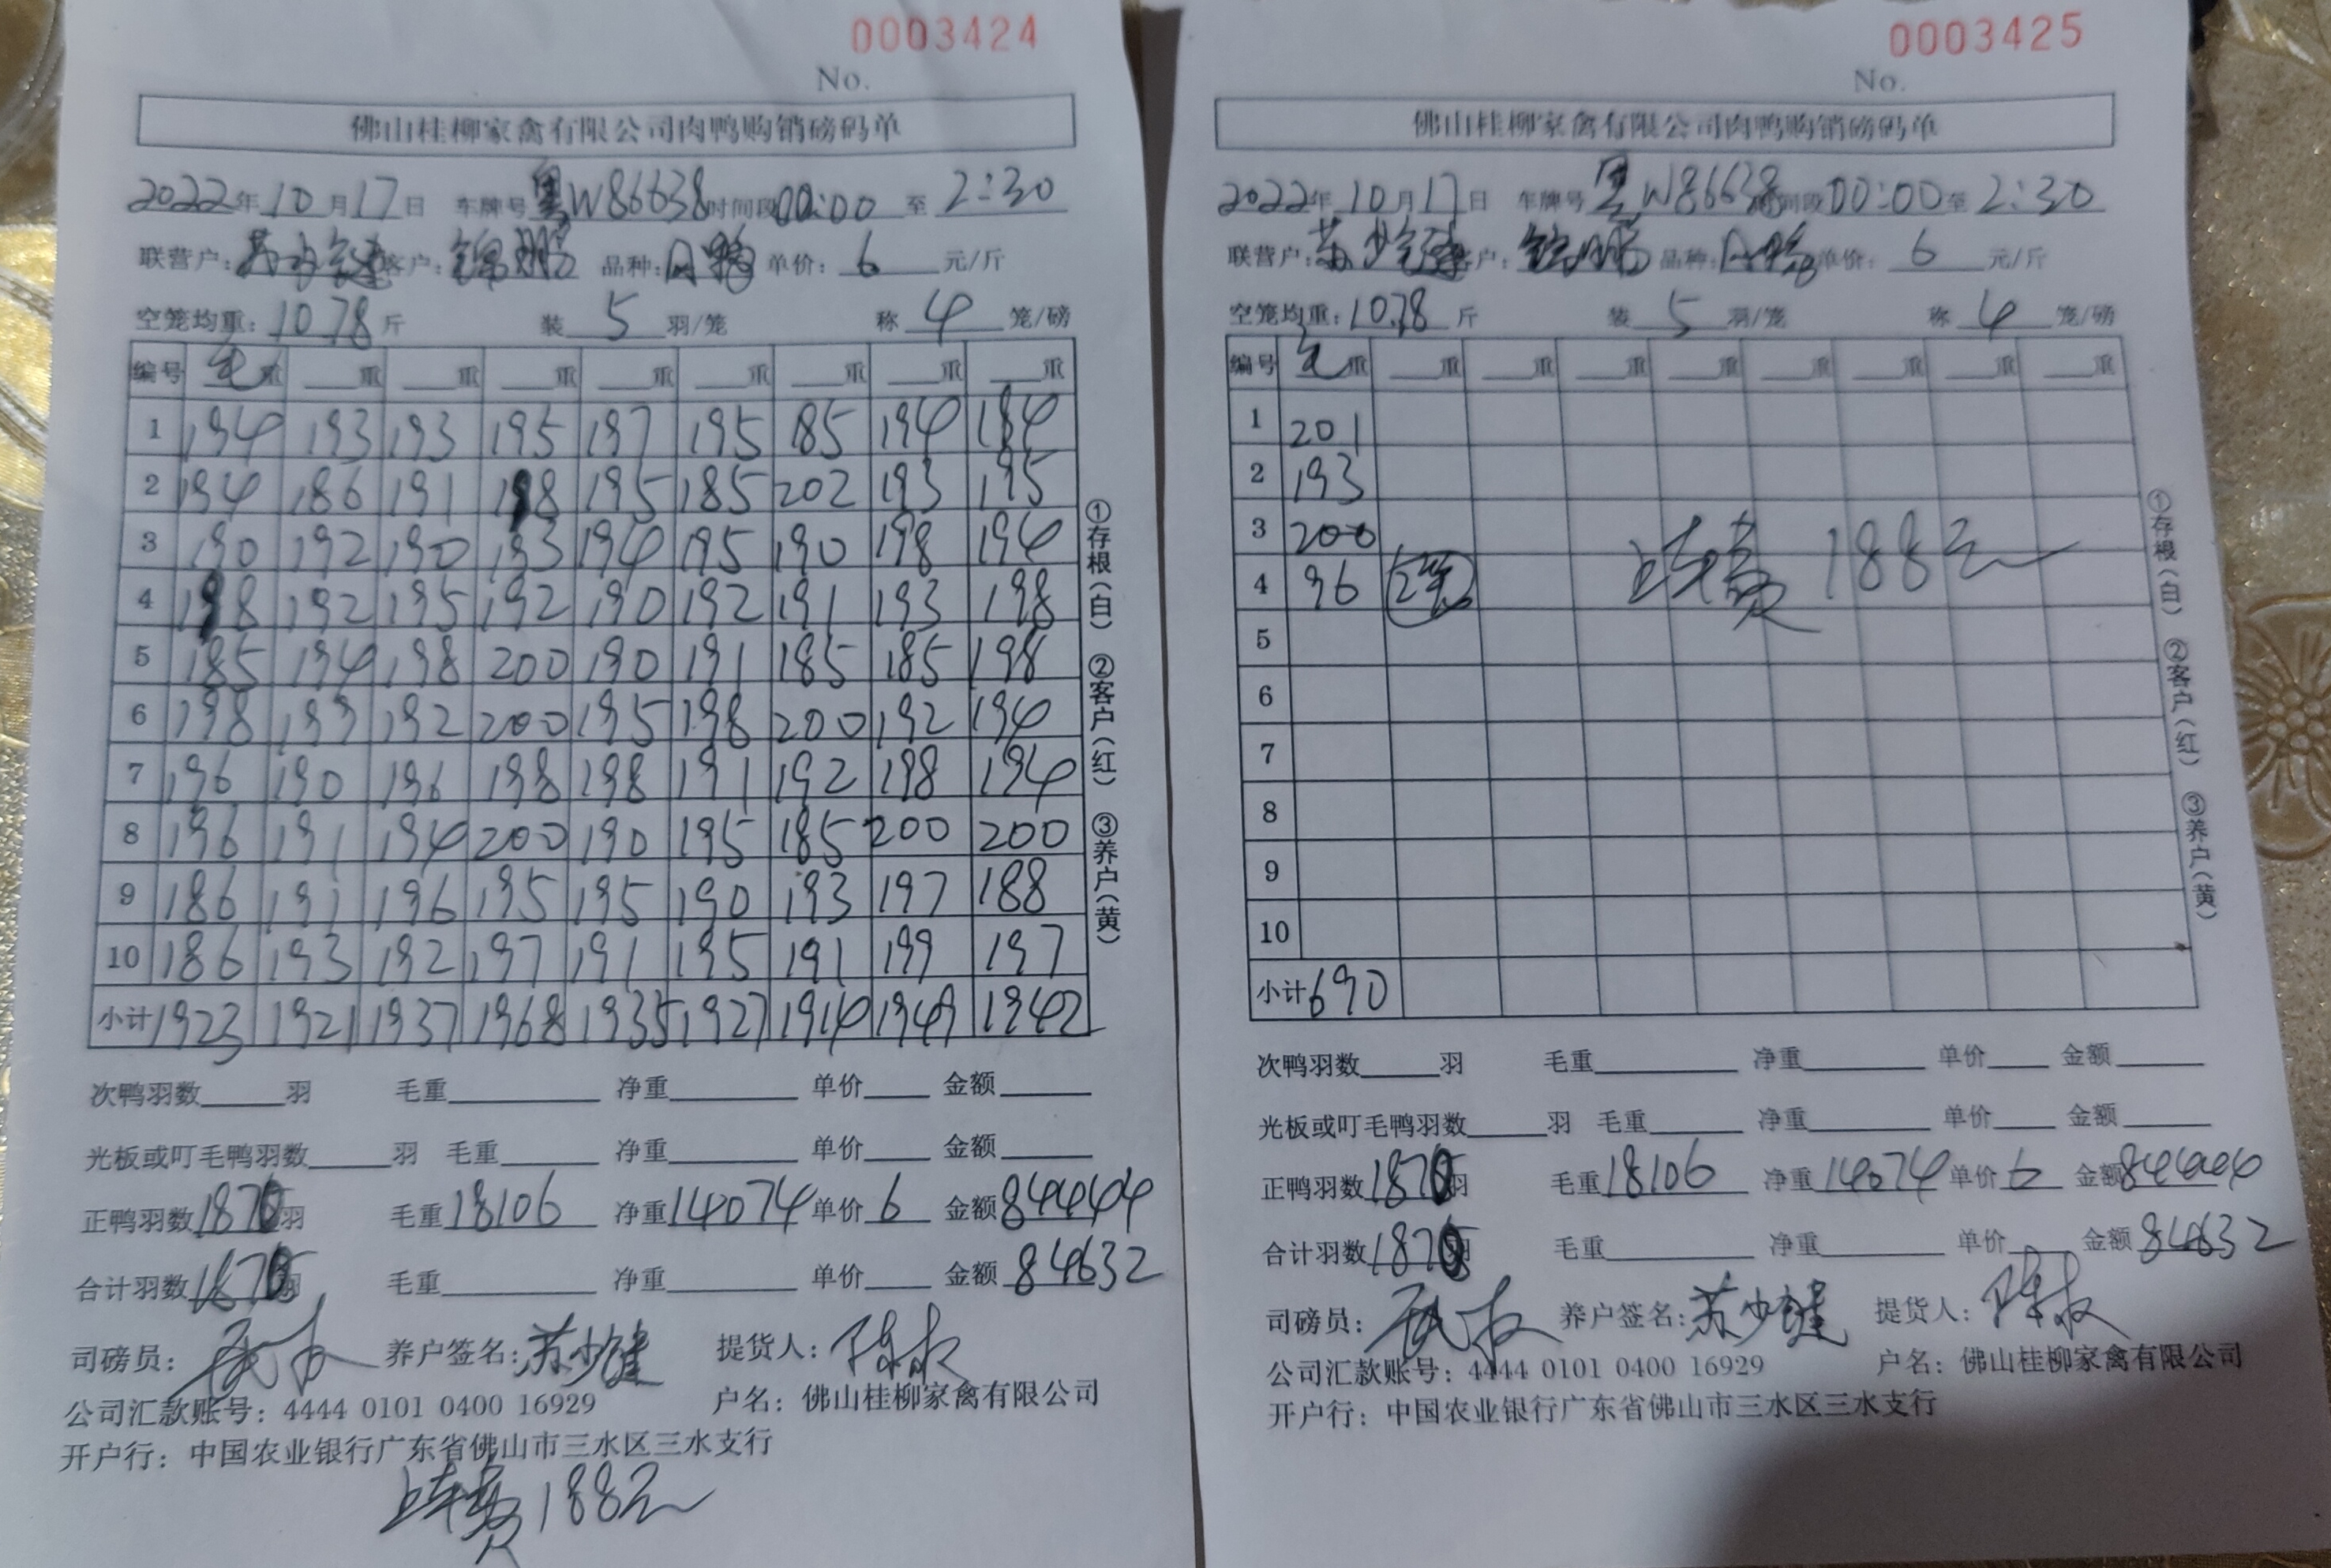 0003424
No.
佛山桂柳家禽有限公司肉鸭购销磅码单
2022年10月17日 车牌号粤W86638时间段00:00至2:30
联营户:苏少健客户:锦鹏 品种: 单价:6元/斤
空笼均重:10.78斤 装5羽/笼 称4笼/磅
编号 毛重 重 重 重 重 重 重 重 重
1 194 193 193 195 197 195 185 194 184
2 194 186 191 198 195 185 202 193 195
3 190 192 190 193 194 195 190 198 194
4 198 192 195 192 190 192 191 193 198
5 185 194 198 200 190 191 185 185 198
6 198 199 192 200 195 198 200 192 194
7 196 190 196 198 198 191 192 198 194
8 196 191 194 200 190 195 185 200 200
9 186 191 196 195 195 190 193 197 188
10 186 193 192 197 191 195 191 199 197
小计 1923 1921 1937 1968 1935 1927 1914 1949 1942
①存根(白) ②客户(红) ③养户(黄)
次鸭羽数 羽 毛重 净重 单价 金额
光板或叮毛鸭羽数 羽 毛重 净重 单价 金额
正鸭羽数1870羽 毛重18106 净重14074 单价6 金额84444
合计羽数1870羽 毛重 净重 单价 金额84632
司磅员: 养户签名:苏少健 提货人:
公司汇款账号:4444 0101 0400 16929 户名:佛山桂柳家禽有限公司
开户行:中国农业银行广东省佛山市三水区三水支行
上车费188元
0003425
No.
佛山桂柳家禽有限公司肉鸭购销磅码单
2022年10月17日 车牌号粤W86638时间段00:00至2:30
联营户:苏少健客户:锦鹏 品种: 单价:6元/斤
空笼均重:10.78斤 装5羽/笼 称4笼/磅
编号 毛重 重 重 重 重 重 重 重 重
1 201
2 193
3 200
4 96 2笼 上车费188元
5
6
7
8
9
10
小计 690
①存根(白) ②客户(红) ③养户(黄)
次鸭羽数 羽 毛重 净重 单价 金额
光板或叮毛鸭羽数 羽 毛重 净重 单价 金额
正鸭羽数1870羽 毛重18106 净重14074 单价6 金额84444
合计羽数1870羽 毛重 净重 单价 金额84632
司磅员: 养户签名:苏少健 提货人:
公司汇款账号:4444 0101 0400 16929 户名:佛山桂柳家禽有限公司
开户行:中国农业银行广东省佛山市三水区三水支行